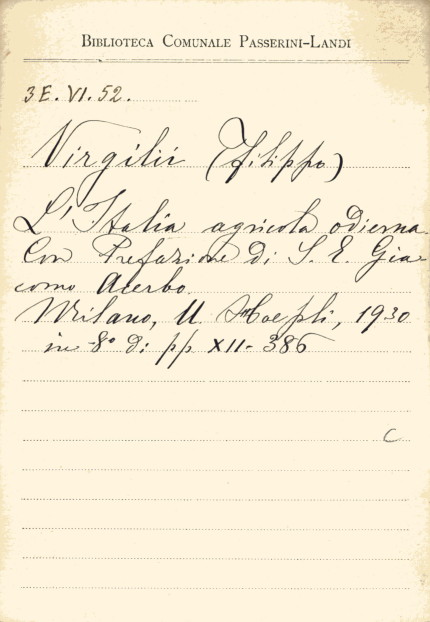 BIBLIOTECA COMUNALE PASSERINI-LANDI
3 E. VI. 52.
Virgilii (Filippo)
L'Italia agricola odierna.
Con Prefazione di S. E. Gia-
como Acerbo.
Milano, U. Hoepli, 1930
in-8° di pp XII-386
C